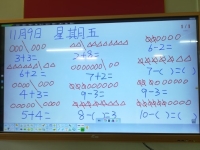 11月9日 星期五
3+3= 2+3= 6-2=
6+2= 7+2= 7-( )=( )
4+3= 9-3= 9-( )=( )
5+4= 8-( )=3 10-( )=( )